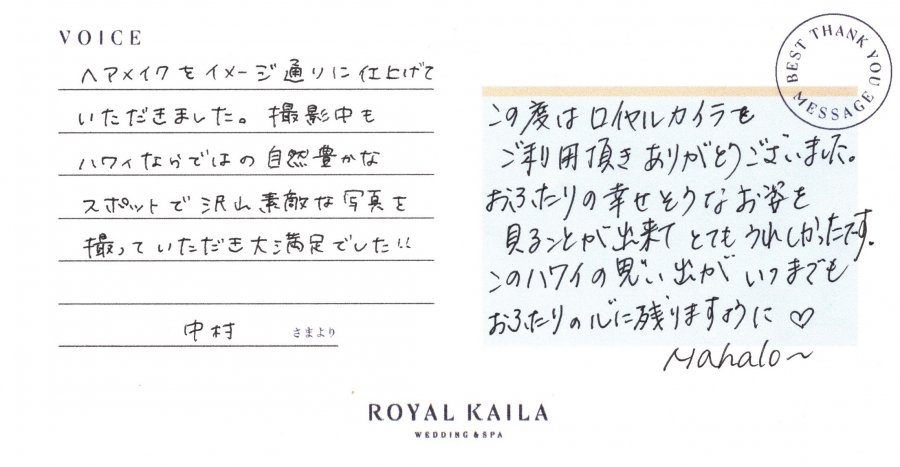 VOICE
ヘアメイクをイメージ通りに仕上げて
いただきました。撮影中も
ハワイならではの自然豊かな
スポットで沢山素敵な写真を
撮っていただき大満足でした!!
中村 さまより
BEST THANK YOU MESSAGE
この度はロイヤルカイラを
ご利用頂きありがとうございました。
おふたりの幸せそうなお姿を
見ることが出来てとてもうれしかったです。
このハワイの思い出がいつまでも
おふたりの心に残りますように♡
Mahalo~
ROYAL KAILA
WEDDING & SPA